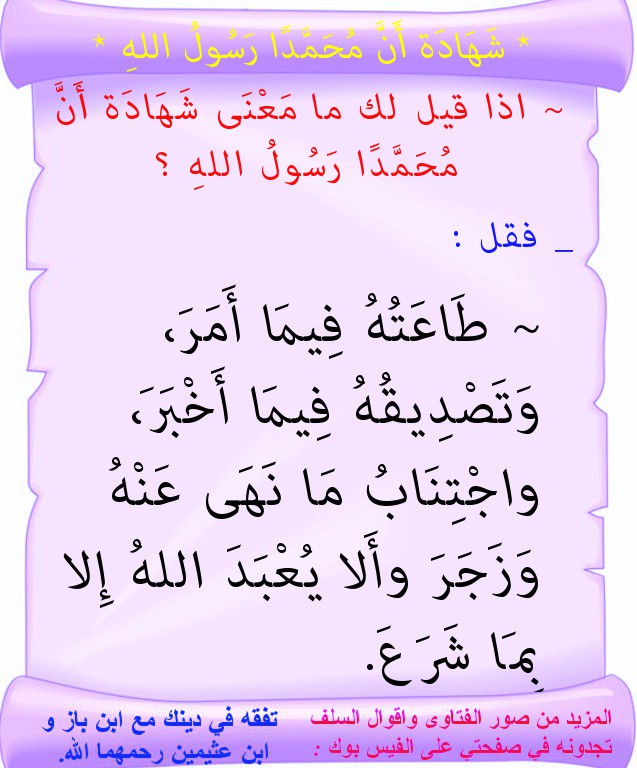 * شَهَادَة أَنَّ مُحَمَّدًا رَسُولُ اللهِ *
~ اذا قيل لك ما مَعْنَى شَهَادَة أَنَّ
مُحَمَّدًا رَسُولُ اللهِ ؟
_ فقل :
~ طَاعَتُهُ فِيمَا أَمَرَ،
وَتَصْدِيقُهُ فِيمَا أَخْبَرَ،
واجْتِنَابُ مَا نَهَى عَنْهُ
وَزَجَرَ وأَلا يُعْبَدَ اللهُ إِلا
بِمَا شَرَعَ.
المزيد من صور الفتاوى واقوال السلف
تجدونه في صفحتي على الفيس بوك :
تفقه في دينك مع ابن باز و
ابن عثيمين رحمهما الله.